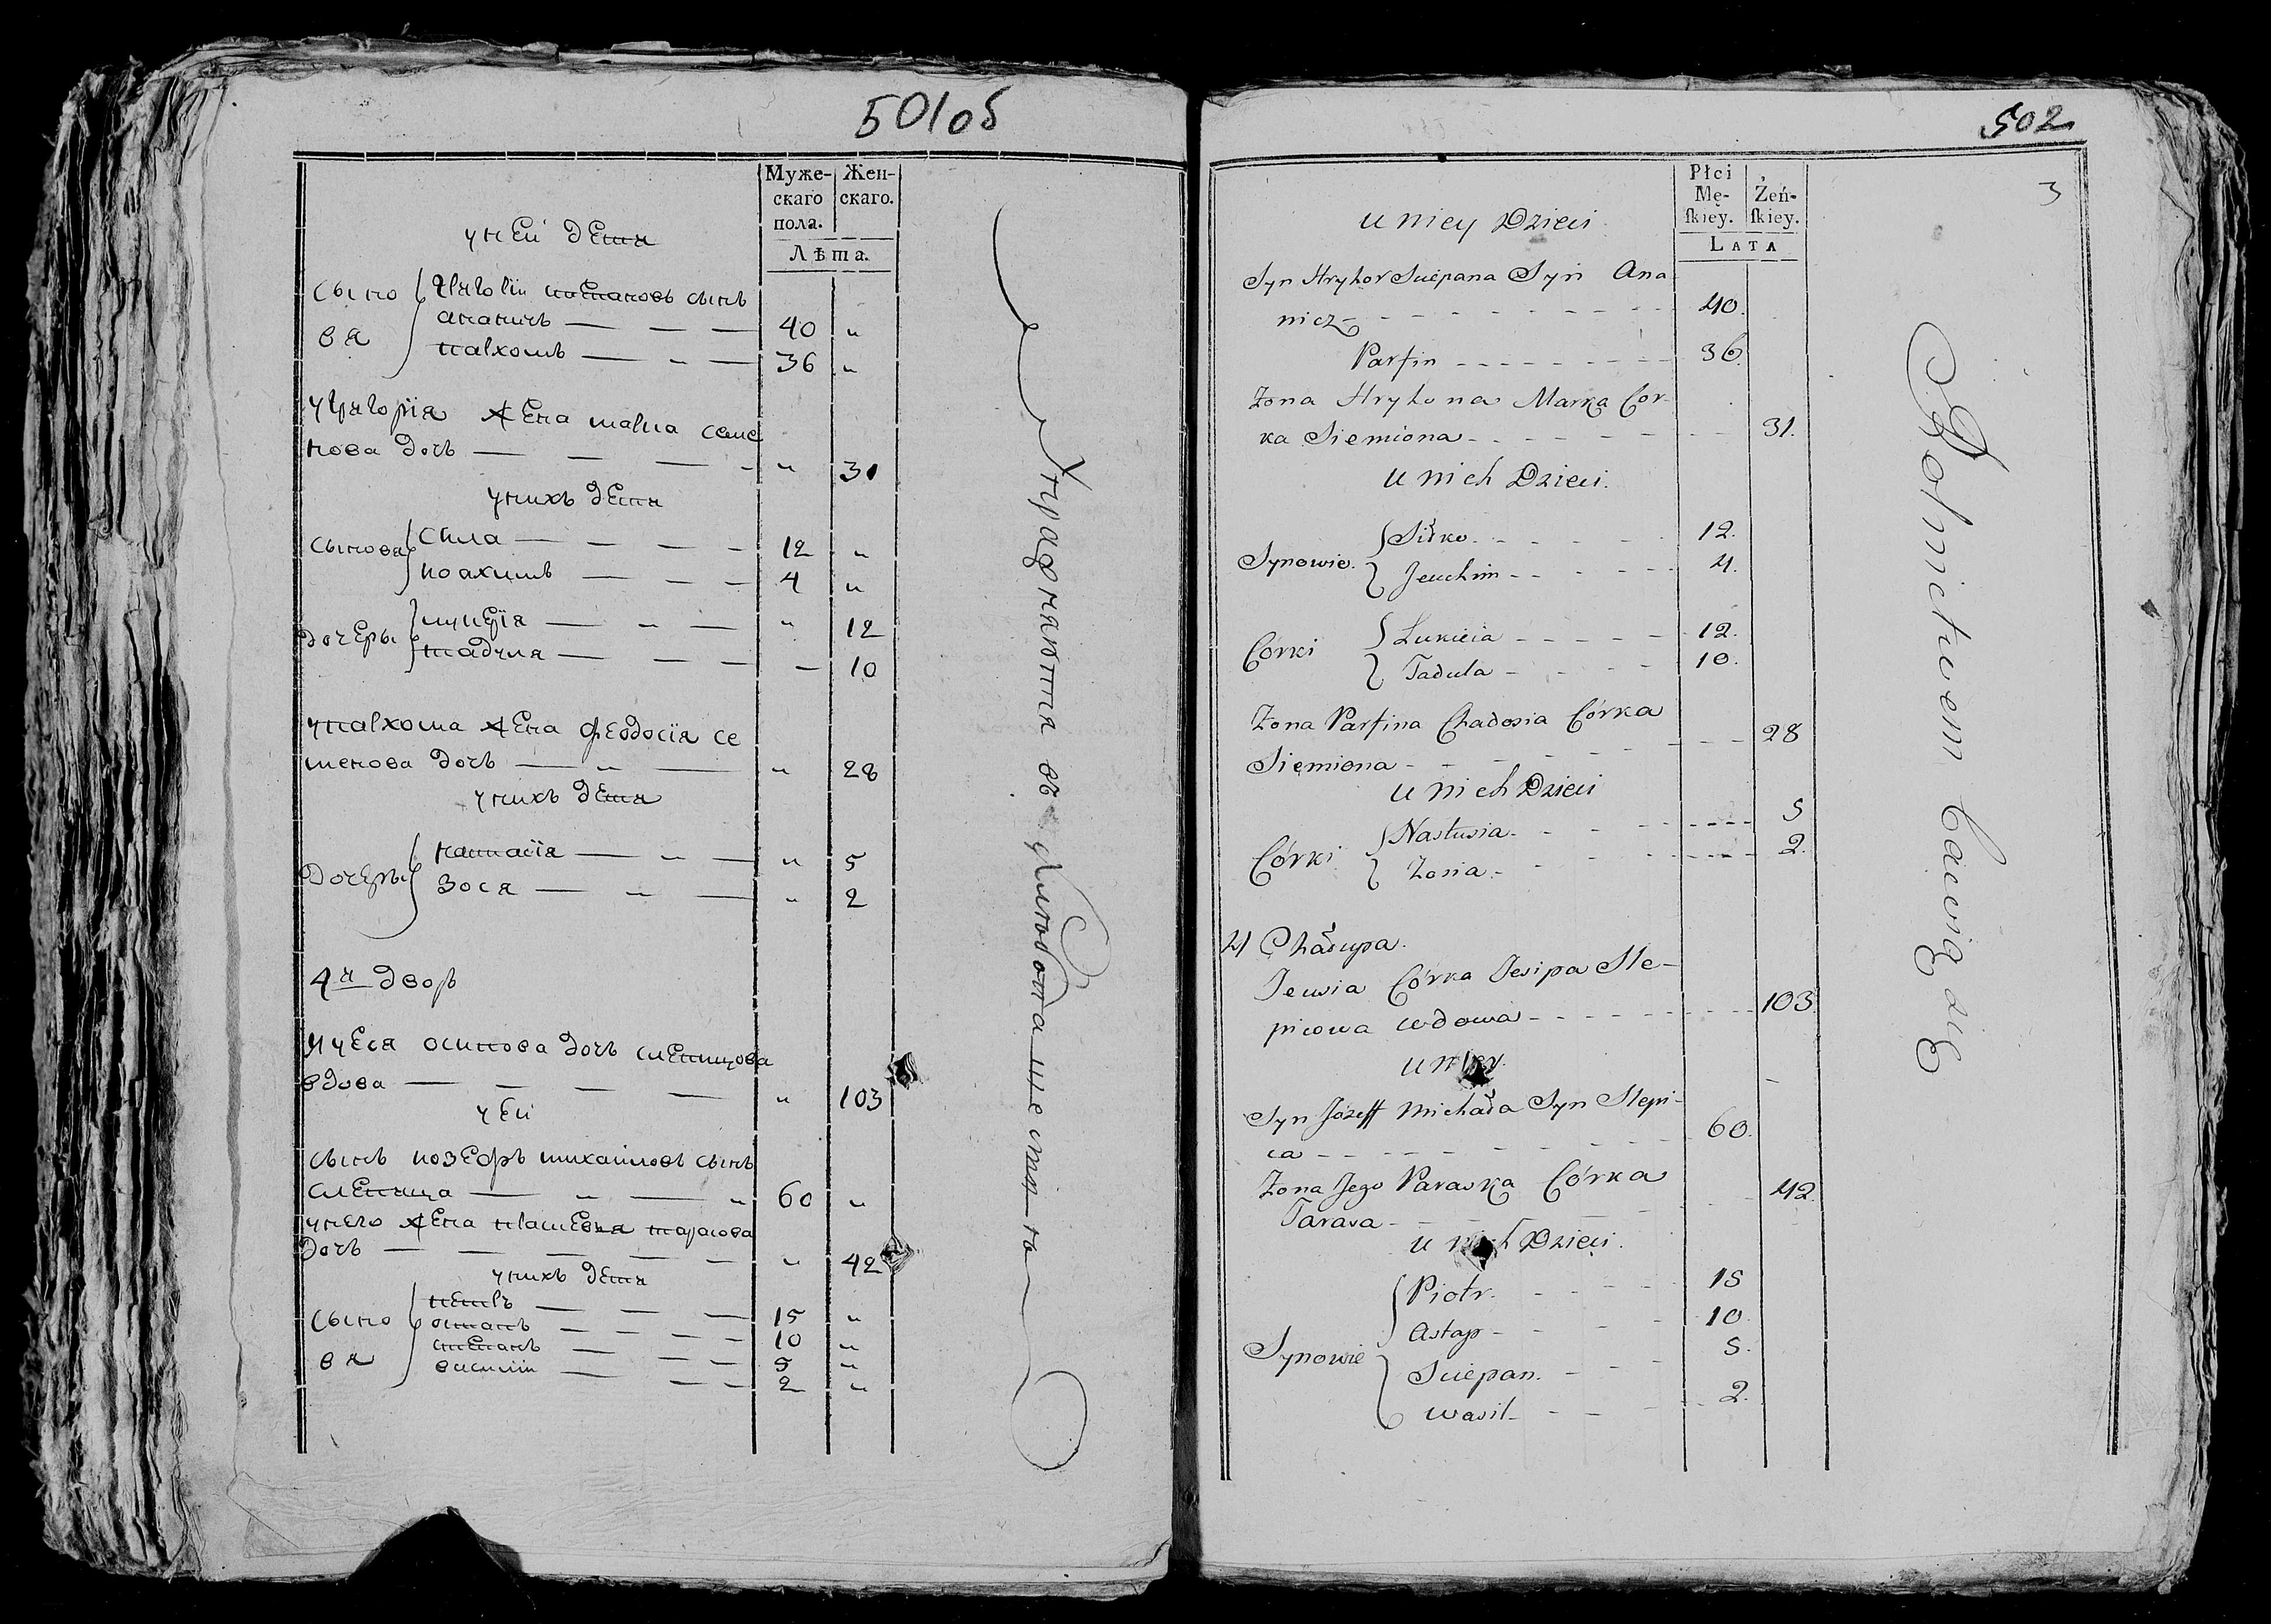 501 об
Муже-
скаго
пола.
Жен-
скаго.
Лѣта.
у ней дети
сыно
вя
Григоріи степановъ сынъ
ананичъ — — — 40 "
пархомъ — " — 36 "
у григорія жена мариа семе
нова дочь — — — - " 31
у нихъ дети
сыновя
Сила — — — - 12 "
иоахимъ — — — 4 "
дочеры
лукерія — " — " 12
тадуля — — — — 10
у пархома жена феодосія се
менова дочь — " — " 28
у нихъ дети
дочеры
настасія — " — " 5
зося — " — " 2
4й дворъ
осипова дочь слепицова
вдова — — — — " 103
у ей
сынъ иозефъ михайловъ сынъ
слепица — " — " 60 "
у него жена тарасова
дочь — — — — — " 42
у нихъ дети
сыно
вя
петръ — — — 15 "
остапъ — — — — 10 "
степанъ — — — 5 "
василій — — — 2 "
Упражняются въ хлебопашестве
502
3
Płci
Mę-
ſkiey.
Żeń-
ſkiey.
LATA
u niey Dzieci
Syn Hryhor Sciepana Syn Ana
nicz - - - - - - - - 40.
Parfin - - - - - - - - 36.
Żona Hryhona Marka Cor-
ka Siemiona - - - - - - - 31.
u nich Dzieci.
Synowie.
Siłko. - - - - - 12.
Jeuchim - - - - - 4.
Córki
Lukieia - - - - - 12.
Tadula - - - - - 10.
Żona Parfina Chadosia Córka
Siemiona - - - - - - - 28
u nich Dzieci
Córki
Nastusia. - - - - - - 5
Zosia. - - - - - - 2.
4 Chałupa.
Jewsia Córka Jesipa Sle-
picowa wdowa - - - - - - - 103
u niey.
Syn Józeff Michała Syn Slepi-
ca - - - - - - - 60.
Żona Jego Paraska Córka
Tarasa - - - - - - - 42.
u nich Dzieci.
Synowie
Piotr. - - - - 15
Astap - - - - 10
Sciepan. - - - - 5.
Wasil - - - - 2.
Rolnictwem bawią się